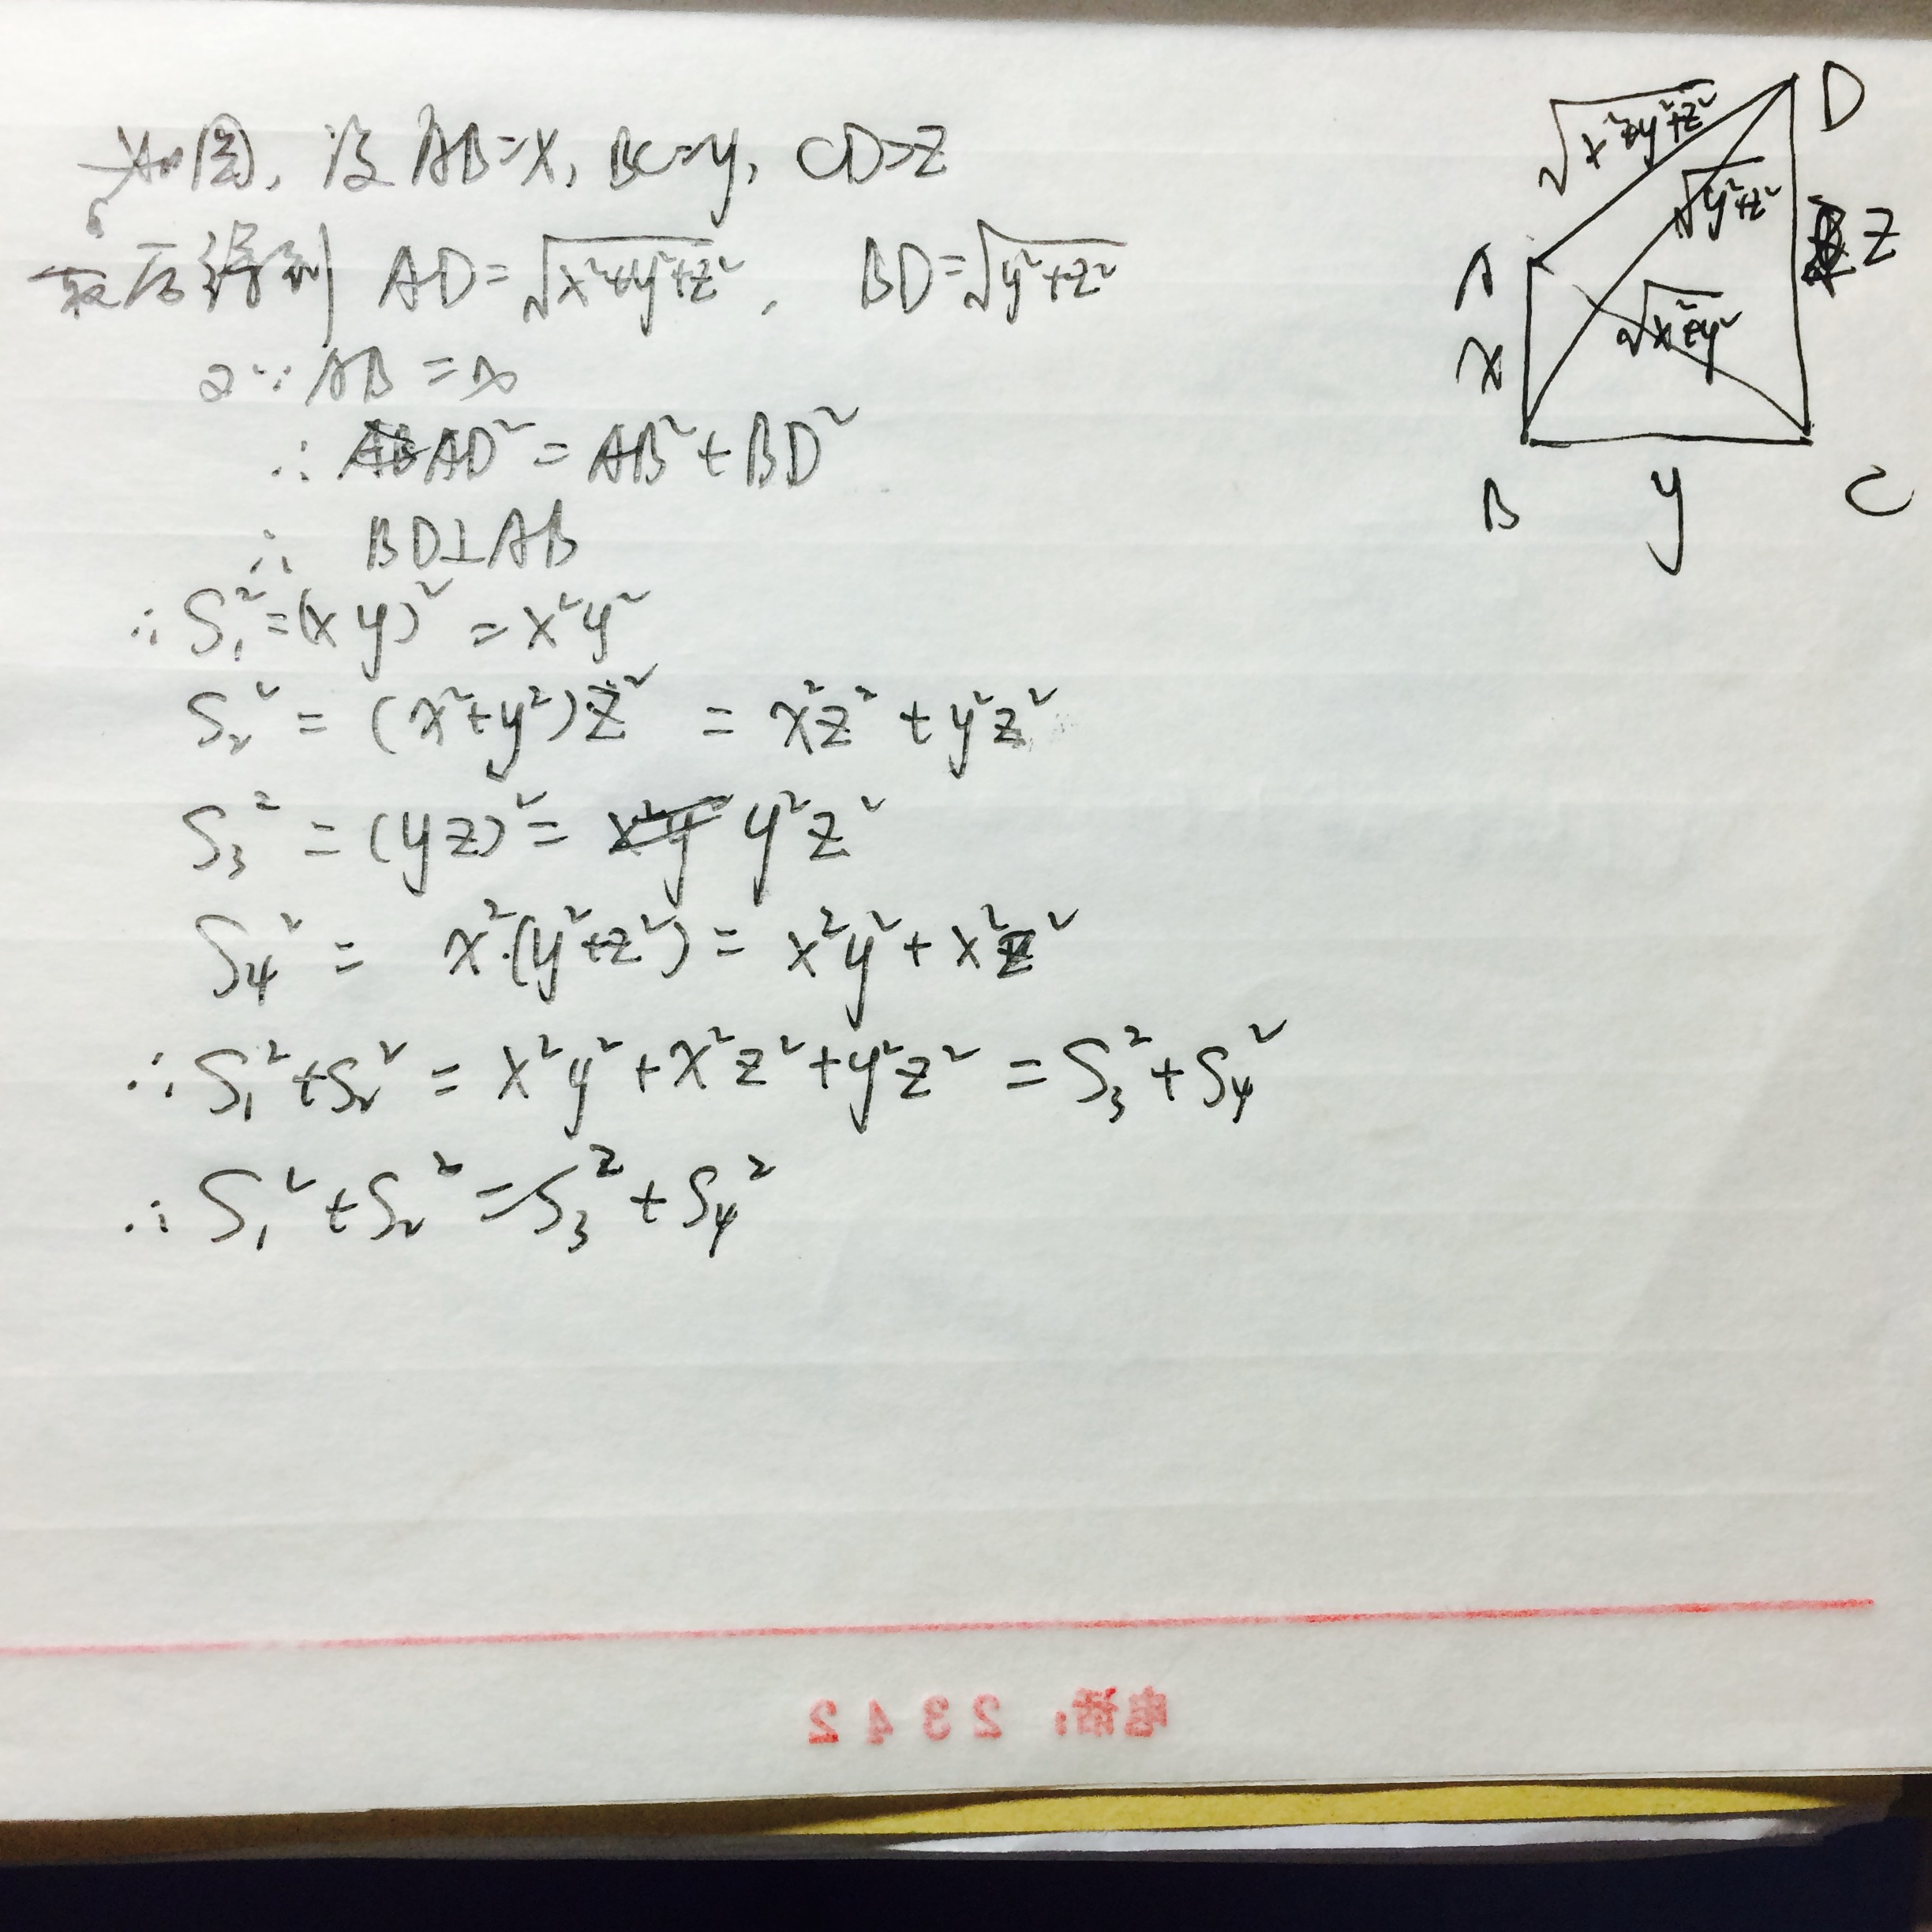 如图, 设 AB=x, BC=y, CD=z
最后得到 AD=√x²+y²+z², BD=√y²+z²
又∵ AB = x
∴ AD² = AB² + BD²
∴ BD⊥AB
∴ S₁²=(xy)² = x²y²
S₂² = (x²+y²)z² = x²z² + y²z²
S₃² = (yz)² = y²z²
S₄² = x²·(y²+z²) = x²y² + x²z²
∴ S₁²+S₂² = x²y²+x²z²+y²z² = S₃²+S₄²
∴ S₁²+S₂²=S₃²+S₄²
√x²+y²+z²
D
√y²+z²
z
A
√x²+y²
x
B
y
C
电话: 2342